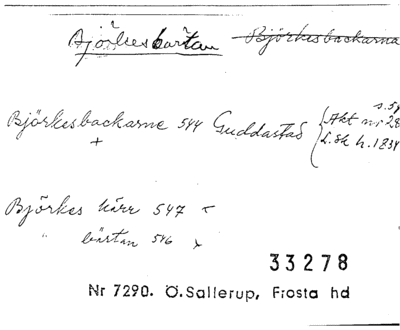 Björkesbörtan Björkesbackarna
s. 59
Björkesbackarne 544 Guddastad Akt nr 28
+ L.sk h. 1834
Björkes kärr 547
" börtan 546 x
33278
Nr 7290. Ö.Sallerup, Frosta hd